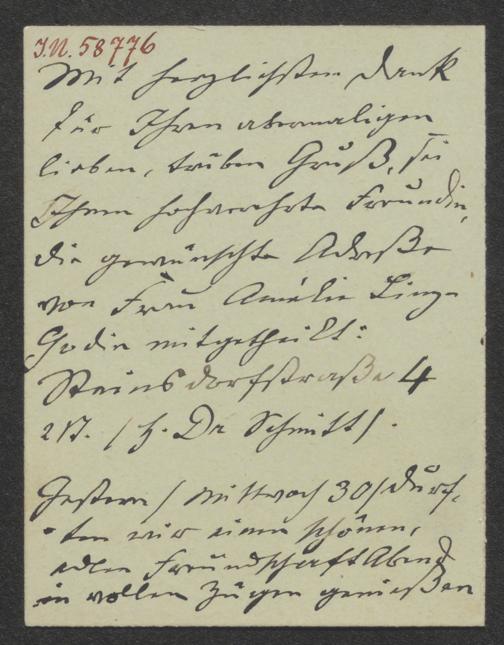 I.N. 58776
Mit herzlichstem Dank
für Ihren abermaligen
lieben, trüben Gruß, sei
Ihnen hochverehrte Freundin,
die gewünschte Adreße
von Frau Amélie Linz-
Godin mitgetheilt:
Steinsdorfstraße 4
2/I. (H. Dr Schmitt).
Gestern (Mittwoch 30) durf-
ten wir einen schönen,
edlen Freundschaft Abend
in vollen Zügen genießen